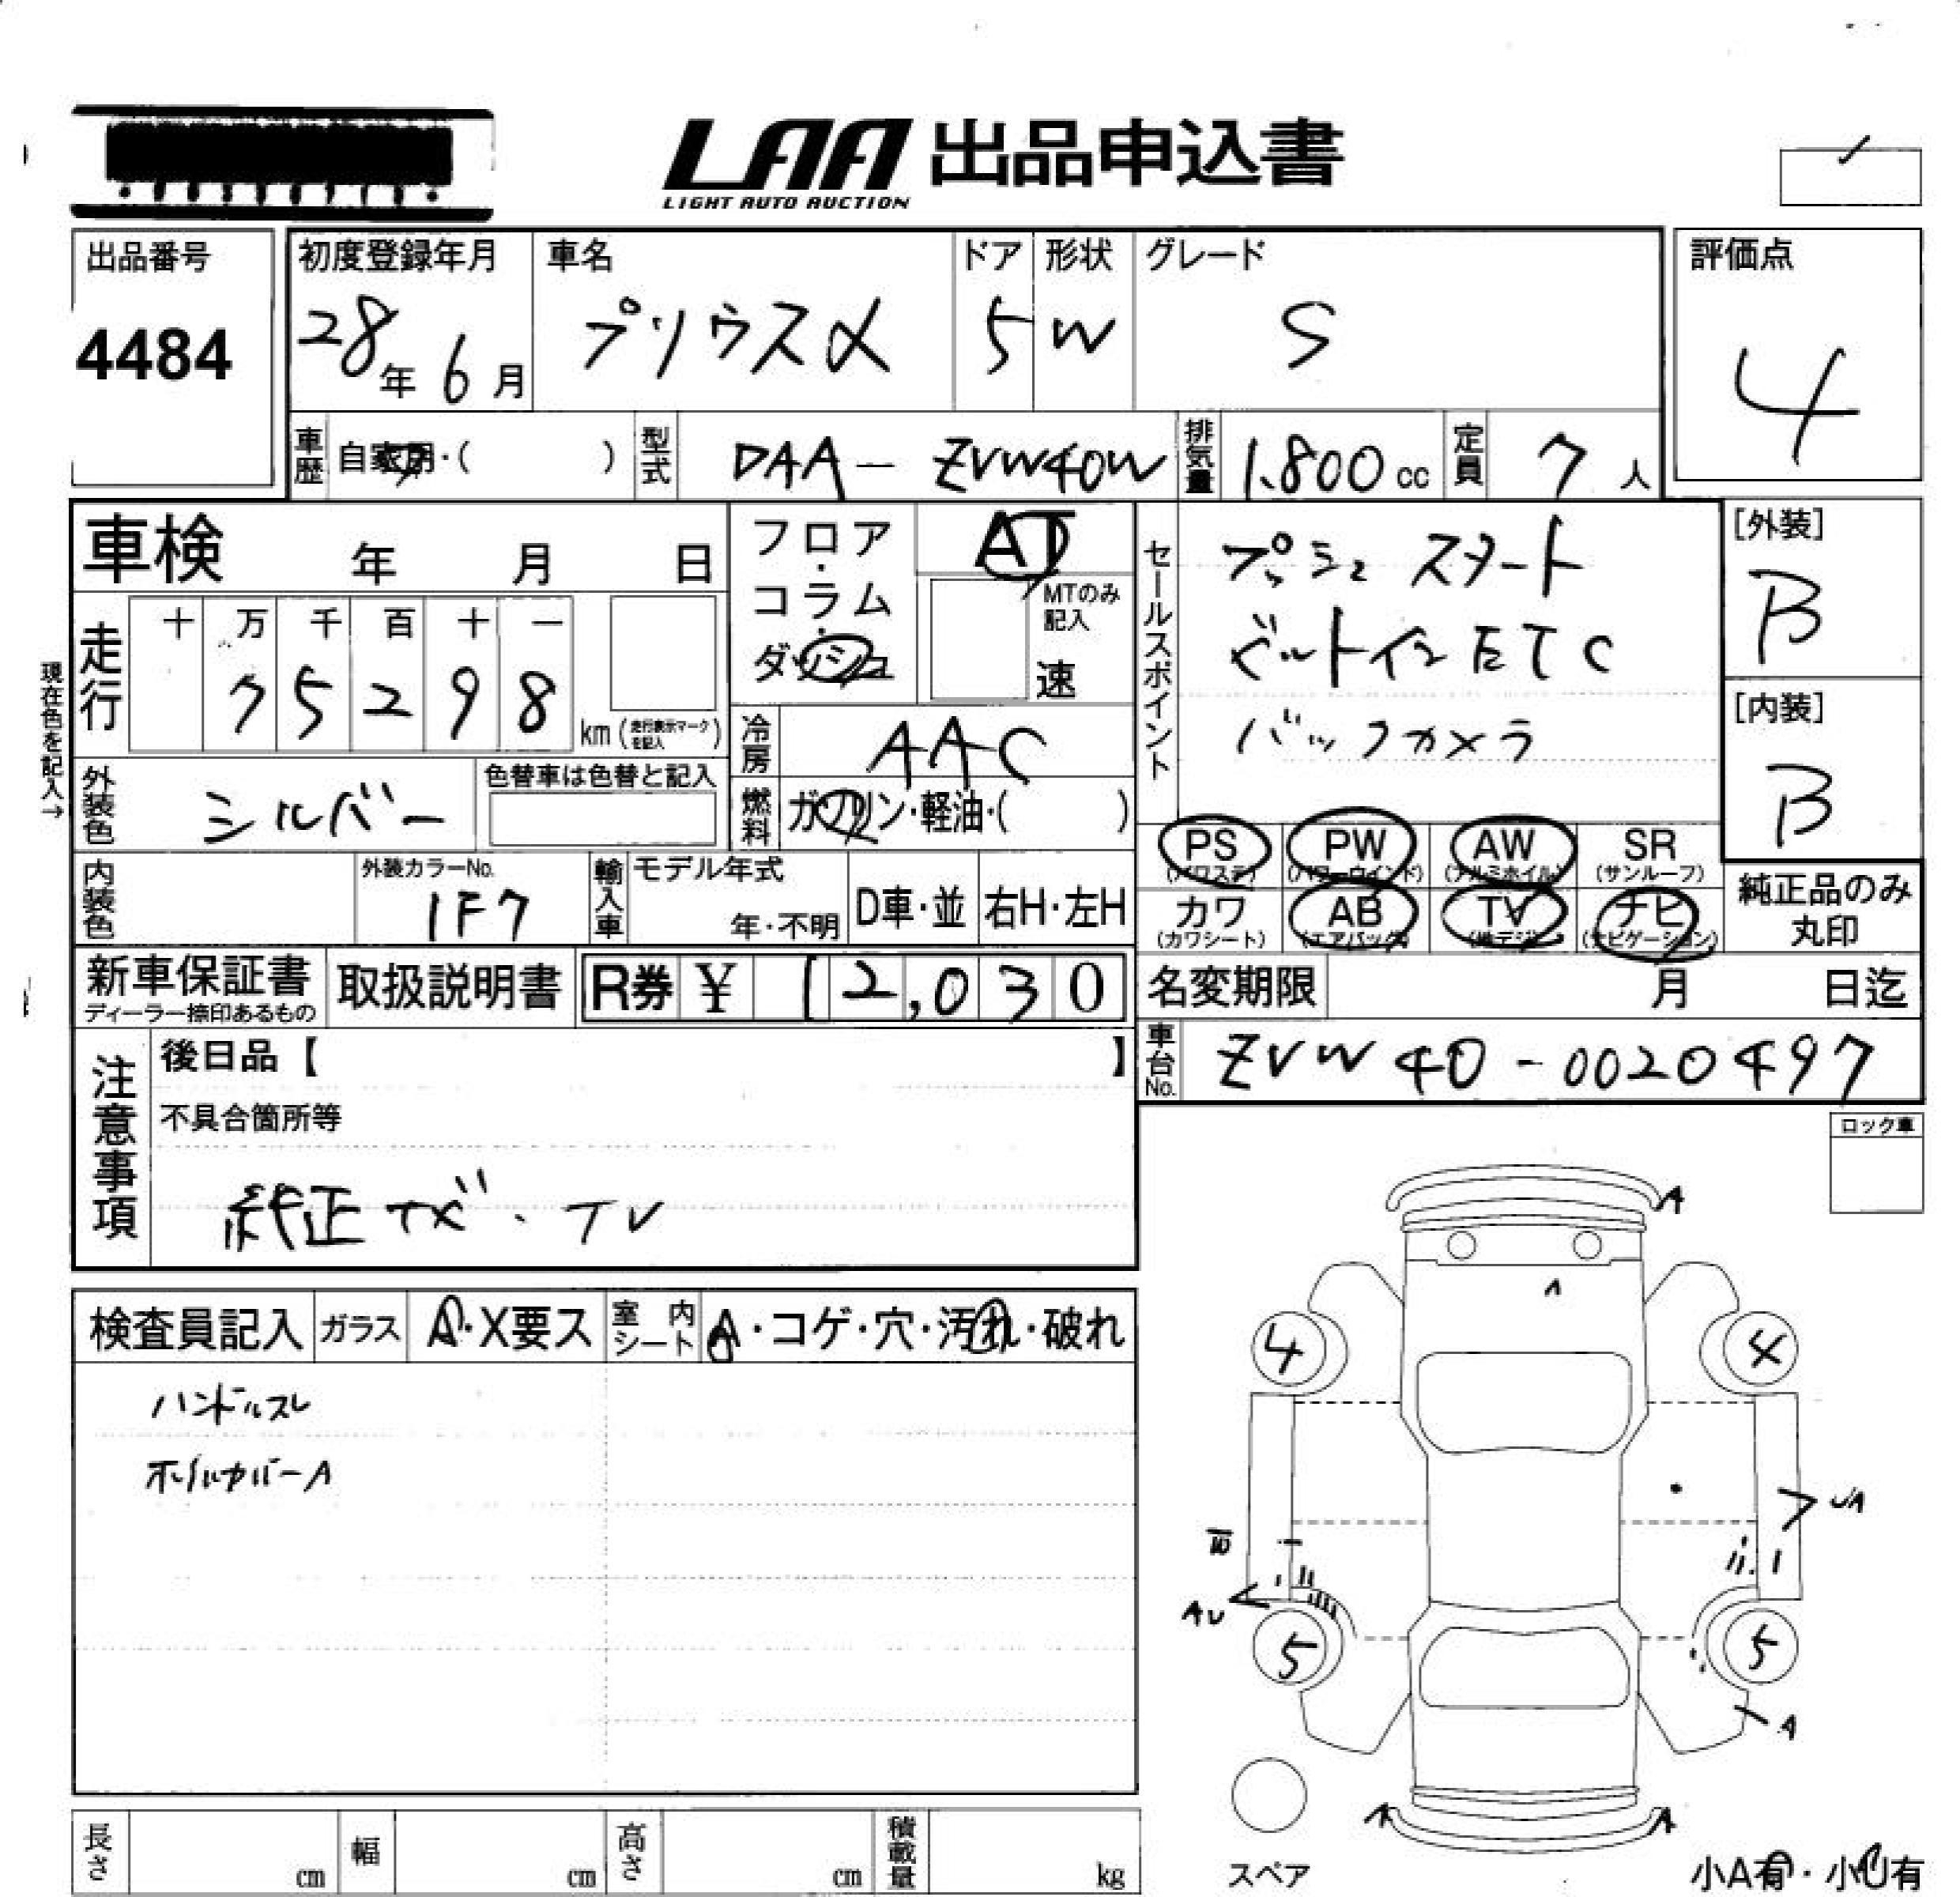 LAA 出品申込書
LIGHT AUTO AUCTION
出品番号
4484
初度登録年月
28年 6月
車名
プリウスα
ドア
5
形状
W
グレード
S
評価点
4
車歴 自家用・( )
型式 DAA-ZVW40W
排気量 1.800 cc
定員 7 人
車検 年 月 日
フロア・コラム・ダッシュ
AT
MTのみ記入
速
セールスポイント
プッシュスタート
ビルトインETC
バックカメラ
[外装]
B
[内装]
B
現在色を記入→
走行
十 万 千 百 十 一
7 5 2 9 8 km (走行表示マークを記入)
冷房 AAC
外装色 シルバー
色替車は色替と記入
燃料 ガソリン・軽油・( )
PS (パワステ) PW (パワーウインド) AW (アルミホイル) SR (サンルーフ)
カワ (カワシート) AB (エアバッグ) TV (地デジ) ナビ (ナビゲーション)
純正品のみ丸印
内装色
外装カラーNo.
1F7
輸入車 モデル年式
年・不明 D車・並 右H・左H
新車保証書
ディーラー捺印あるもの
取扱説明書
R券 ¥ 12,030
名変期限 月 日迄
車台No. ZVW40-0020497
注意事項
後日品【 】
不具合箇所等
純正ナビ・TV
ロック車
検査員記入 ガラス A・X要ス 室内シート A・コゲ・穴・汚れ・破れ
ハンドルスレ
ホイルカバーA
A
A
4 4
UA
AU
5 5
A
A A
スペア
小A有・小U有
長さ cm 幅 cm 高さ cm 積載量 kg